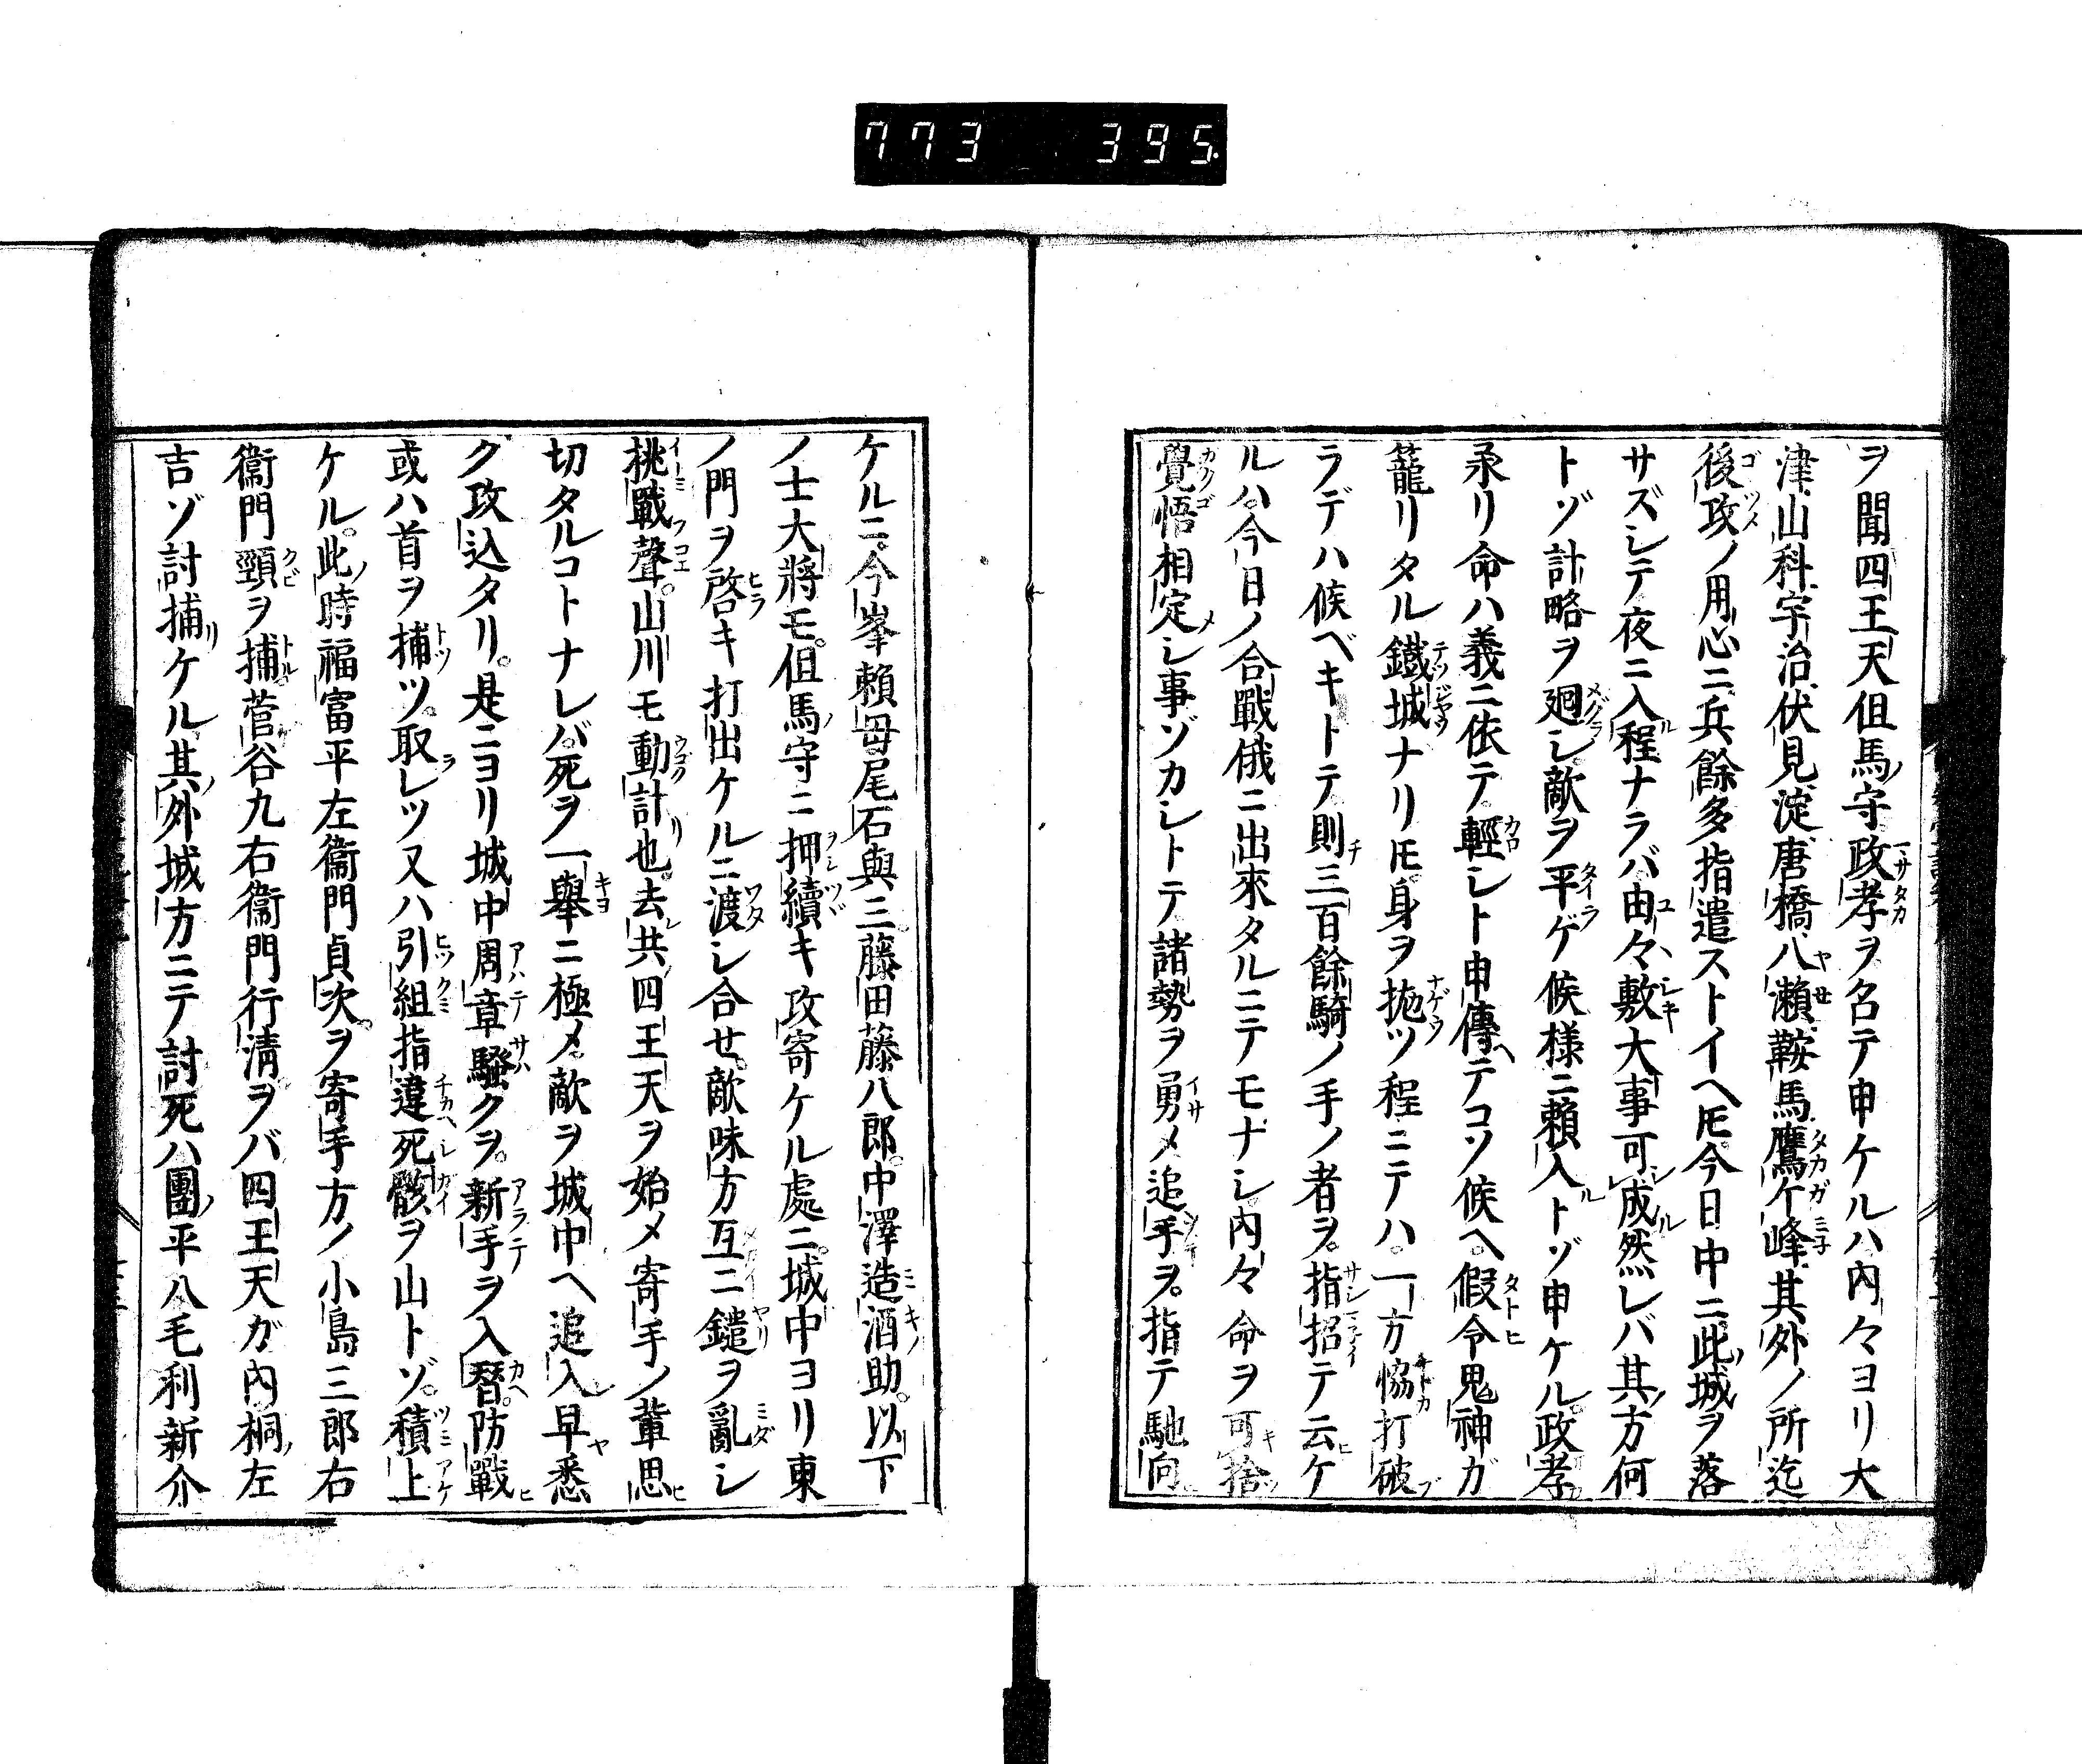 773 395
ヲ聞四王天伹馬守政孝ヲ名テ申ケルハ內々ヨリ大
津山科宇治伏見淀唐橋八瀬鞍馬鷹ケ峰其外ノ所迄
後攻ノ用心ニ兵餘多指遣ストイヘ𪜈今日中ニ此城ヲ落
サズシテ夜ニ入程ナラバ由々敷大事可レ成然レバ其方何
トゾ計略ヲ廻シ敵ヲ平ゲ候様ニ賴入トゾ申ケル政孝
承リ命ハ義ニ依テ輕シト申傳ヘテコソ候ヘ假令鬼神ガ
籠リタル鐵城ナリ𪜈身ヲ抛ツ程ニテハ一方恊打破
ラデハ候ベキトテ則三百餘騎ノ手ノ者ヲ指招テ云ケ
ルハ今日ノ合戰俄ニ出來タルニテモナシ內々命ヲ可捨
覺悟相定メシ事ゾカシトテ諸勢ヲ勇メ追手ヲ指テ馳向
ケルニ今峯賴母尾石與三藤田藤八郎中澤造酒助以下
ノ士大將モ伹馬守ニ押續キ攻寄ケル處ニ城中ヨリ東
ノ門ヲ啓キ打出ケルニ渡シ合セ敵味方互ニ鑓ヲ亂シ
桃戰聲山川モ動計也去共四王天ヲ始メ寄手ノ輩思
切タルコトナレバ死ヲ一擧ニ極メ敵ヲ城中ヘ追入早悉
ク攻込タリ是ニヨリ城中周章騷クヲ新手ヲ入替防戰
或ハ首ヲ捕ツ取レツ又ハ引組指違死骸ヲ山トゾ積上
ケル此時福富平左衞門貞次ヲ寄手方ノ小島三郎右
衞門頸ヲ捕菅谷九右衞門行淸ヲバ四王天ガ內桐左
吉ゾ討捕ケル其外城方ニテ討死ハ團平八毛利新介